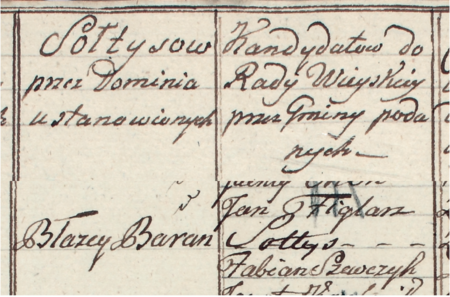 Sołtysow
przez Dominia
ustanowionych
Kandydatow do
Rady Wieyskiey
przez Gminy poda
nych
Błazey Baran
Jan Figlarz
Sołtys - - -
Fabian Szewczyk